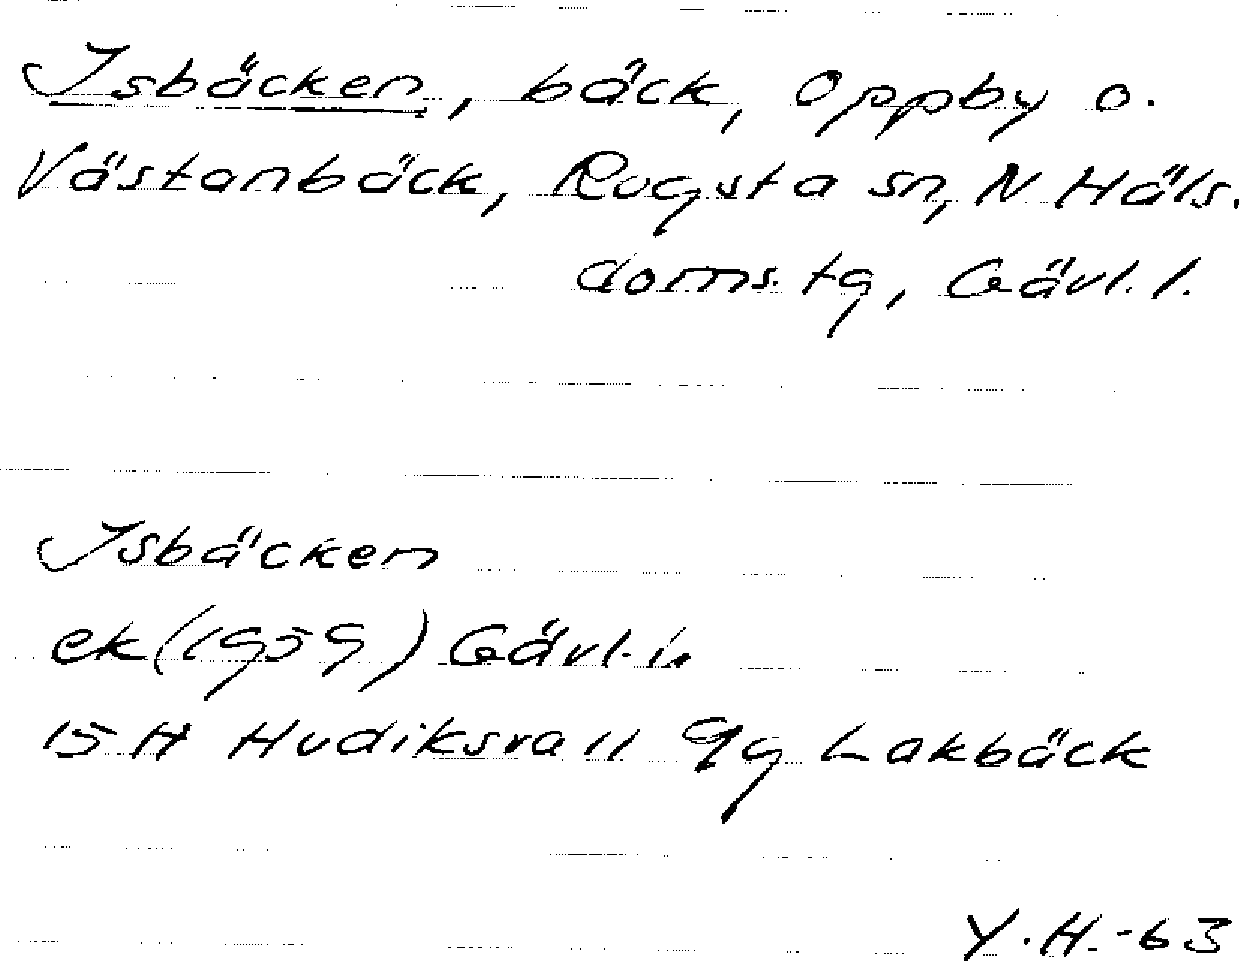 Isbäcken, bäck, Oppby o.
Västanbäck, Rogsta sn, N Häls.
doms. tg, Gävl. l.
Isbäcken
ek (1959) Gävl. l.
15 H Hudiksvall 9g Lakbäck
Y.H.-63